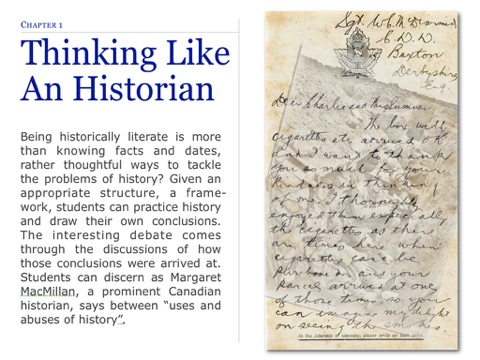 CHAPTER 1
Thinking Like
An Historian
Being historically literate is more
than knowing facts and dates,
rather thoughtful ways to tackle
the problems of history? Given an
appropriate structure, a frame-
work, students can practice history
and draw their own conclusions.
The interesting debate comes
through the discussions of how
those conclusions were arrived at.
Students can discern as Margaret
MacMillan, a prominent Canadian
historian, says between “uses and
abuses of history”.
Sgt. W.C. McDiarmid
Buxton
Derbyshire
Eng.
Dear Charlie and
The box with
cigarettes etc arrived OK
and I want to thank
you so much for your
in thinking
of me. I thoroughly
enjoyed them especially
the cigarettes as there
are times here when
cigarettes can't be
purchased and your
parcel arrived at one
of those times so you
can imagine my delight
on seeing the
In the interests of economy, please write on both sides.